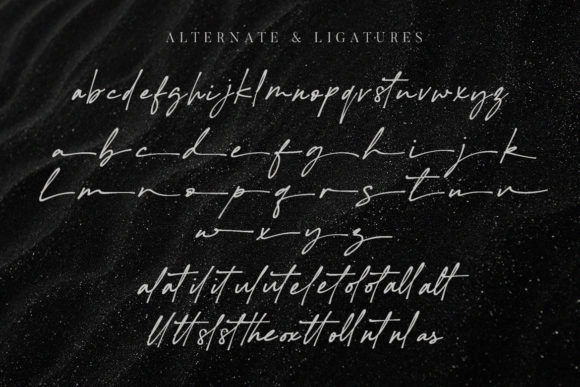 ALTERNATE & LIGATURES
abcdefghijklmnopqrstuvwxyz
a b c d e f g h i j k
l m n o p q r s t u v
w x y z
al at il it ul ut el et ol ot all alt
ll tt sl st the ox tt oll nt nl as